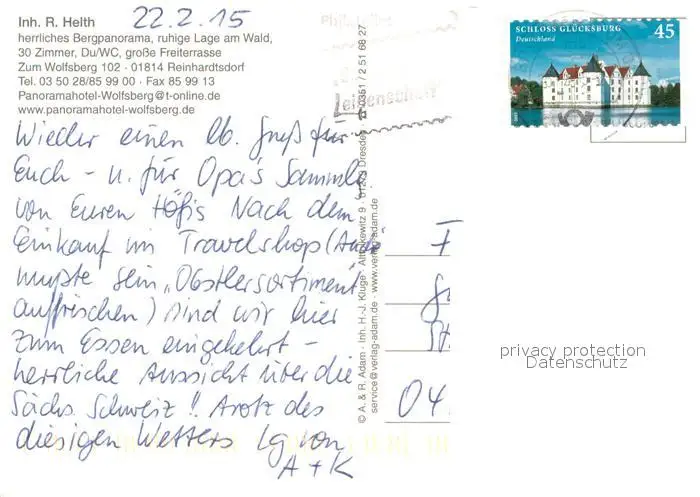 Inh. R. Heith
herrliches Bergpanorama, ruhige Lage am Wald,
30 Zimmer, Du/WC, große Freiterrasse
Zum Wolfsberg 102 · 01814 Reinhardtsdorf
Tel. 03 50 28/85 99 00 · Fax 85 99 13
Panoramahotel-Wolfsberg@t-online.de
www.panoramahotel-wolfsberg.de
22.2.15
Wieder einen lb. Gruß für
Euch – u. für Opa's Sammlg
von Euren Höfis Nach dem
Einkauf im Travelshop (
mußte sein „Obstlersortiment"
auffrischen) sind wir hier
zum Essen eingekehrt –
herrliche Aussicht über die
Sächs Schweiz!! Trotz des
diesigen Wetters Lg von
A + K
© A. & R. Adam - Inh. H.-J. Kluge · Altnickewitz 9 · 01259 Dresden · ☎ 0351/2 51 68 27
service@verlag-adam.de · www.verlag-adam.de
Leidenschaft
SCHLOSS GLÜCKSBURG 45
Deutschland
F
St
04
privacy protection
Datenschutz